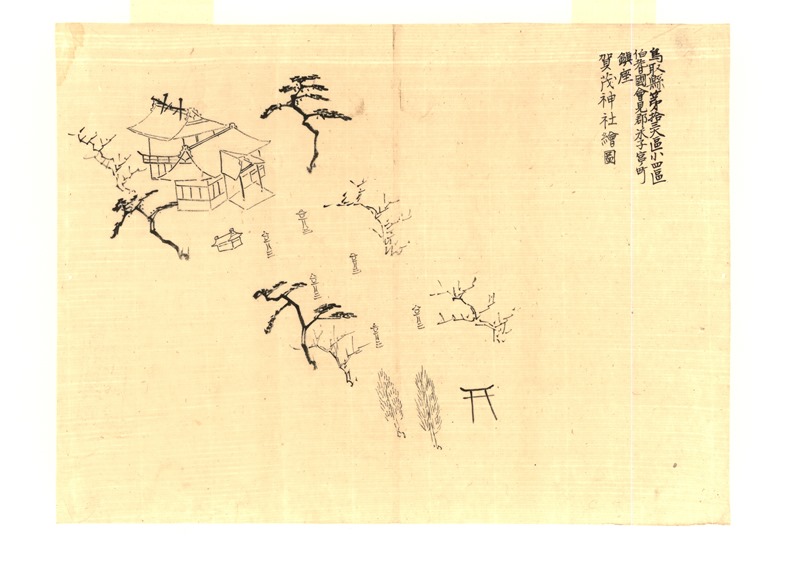 鳥取縣第拾六區小四區
伯耆國會見郡米子宮町
鎭座
賀茂神社繪圖